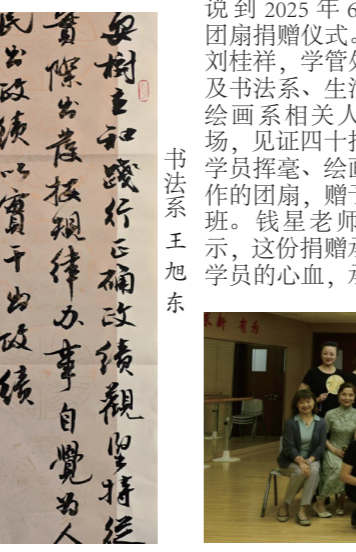 要樹立和踐行正确政績觀堅持從
實際出發按規律办事自覺為人
民出政績以實干出政績
书法系 王旭东
说到 2025 年 6
团扇捐赠仪式。
刘桂祥，学管处
及书法系、生活
绘画系相关人
场，见证四十把
学员挥毫、绘画
作的团扇，赠予
班。钱星老师
示，这份捐赠承
学员的心血，承
永新 有为